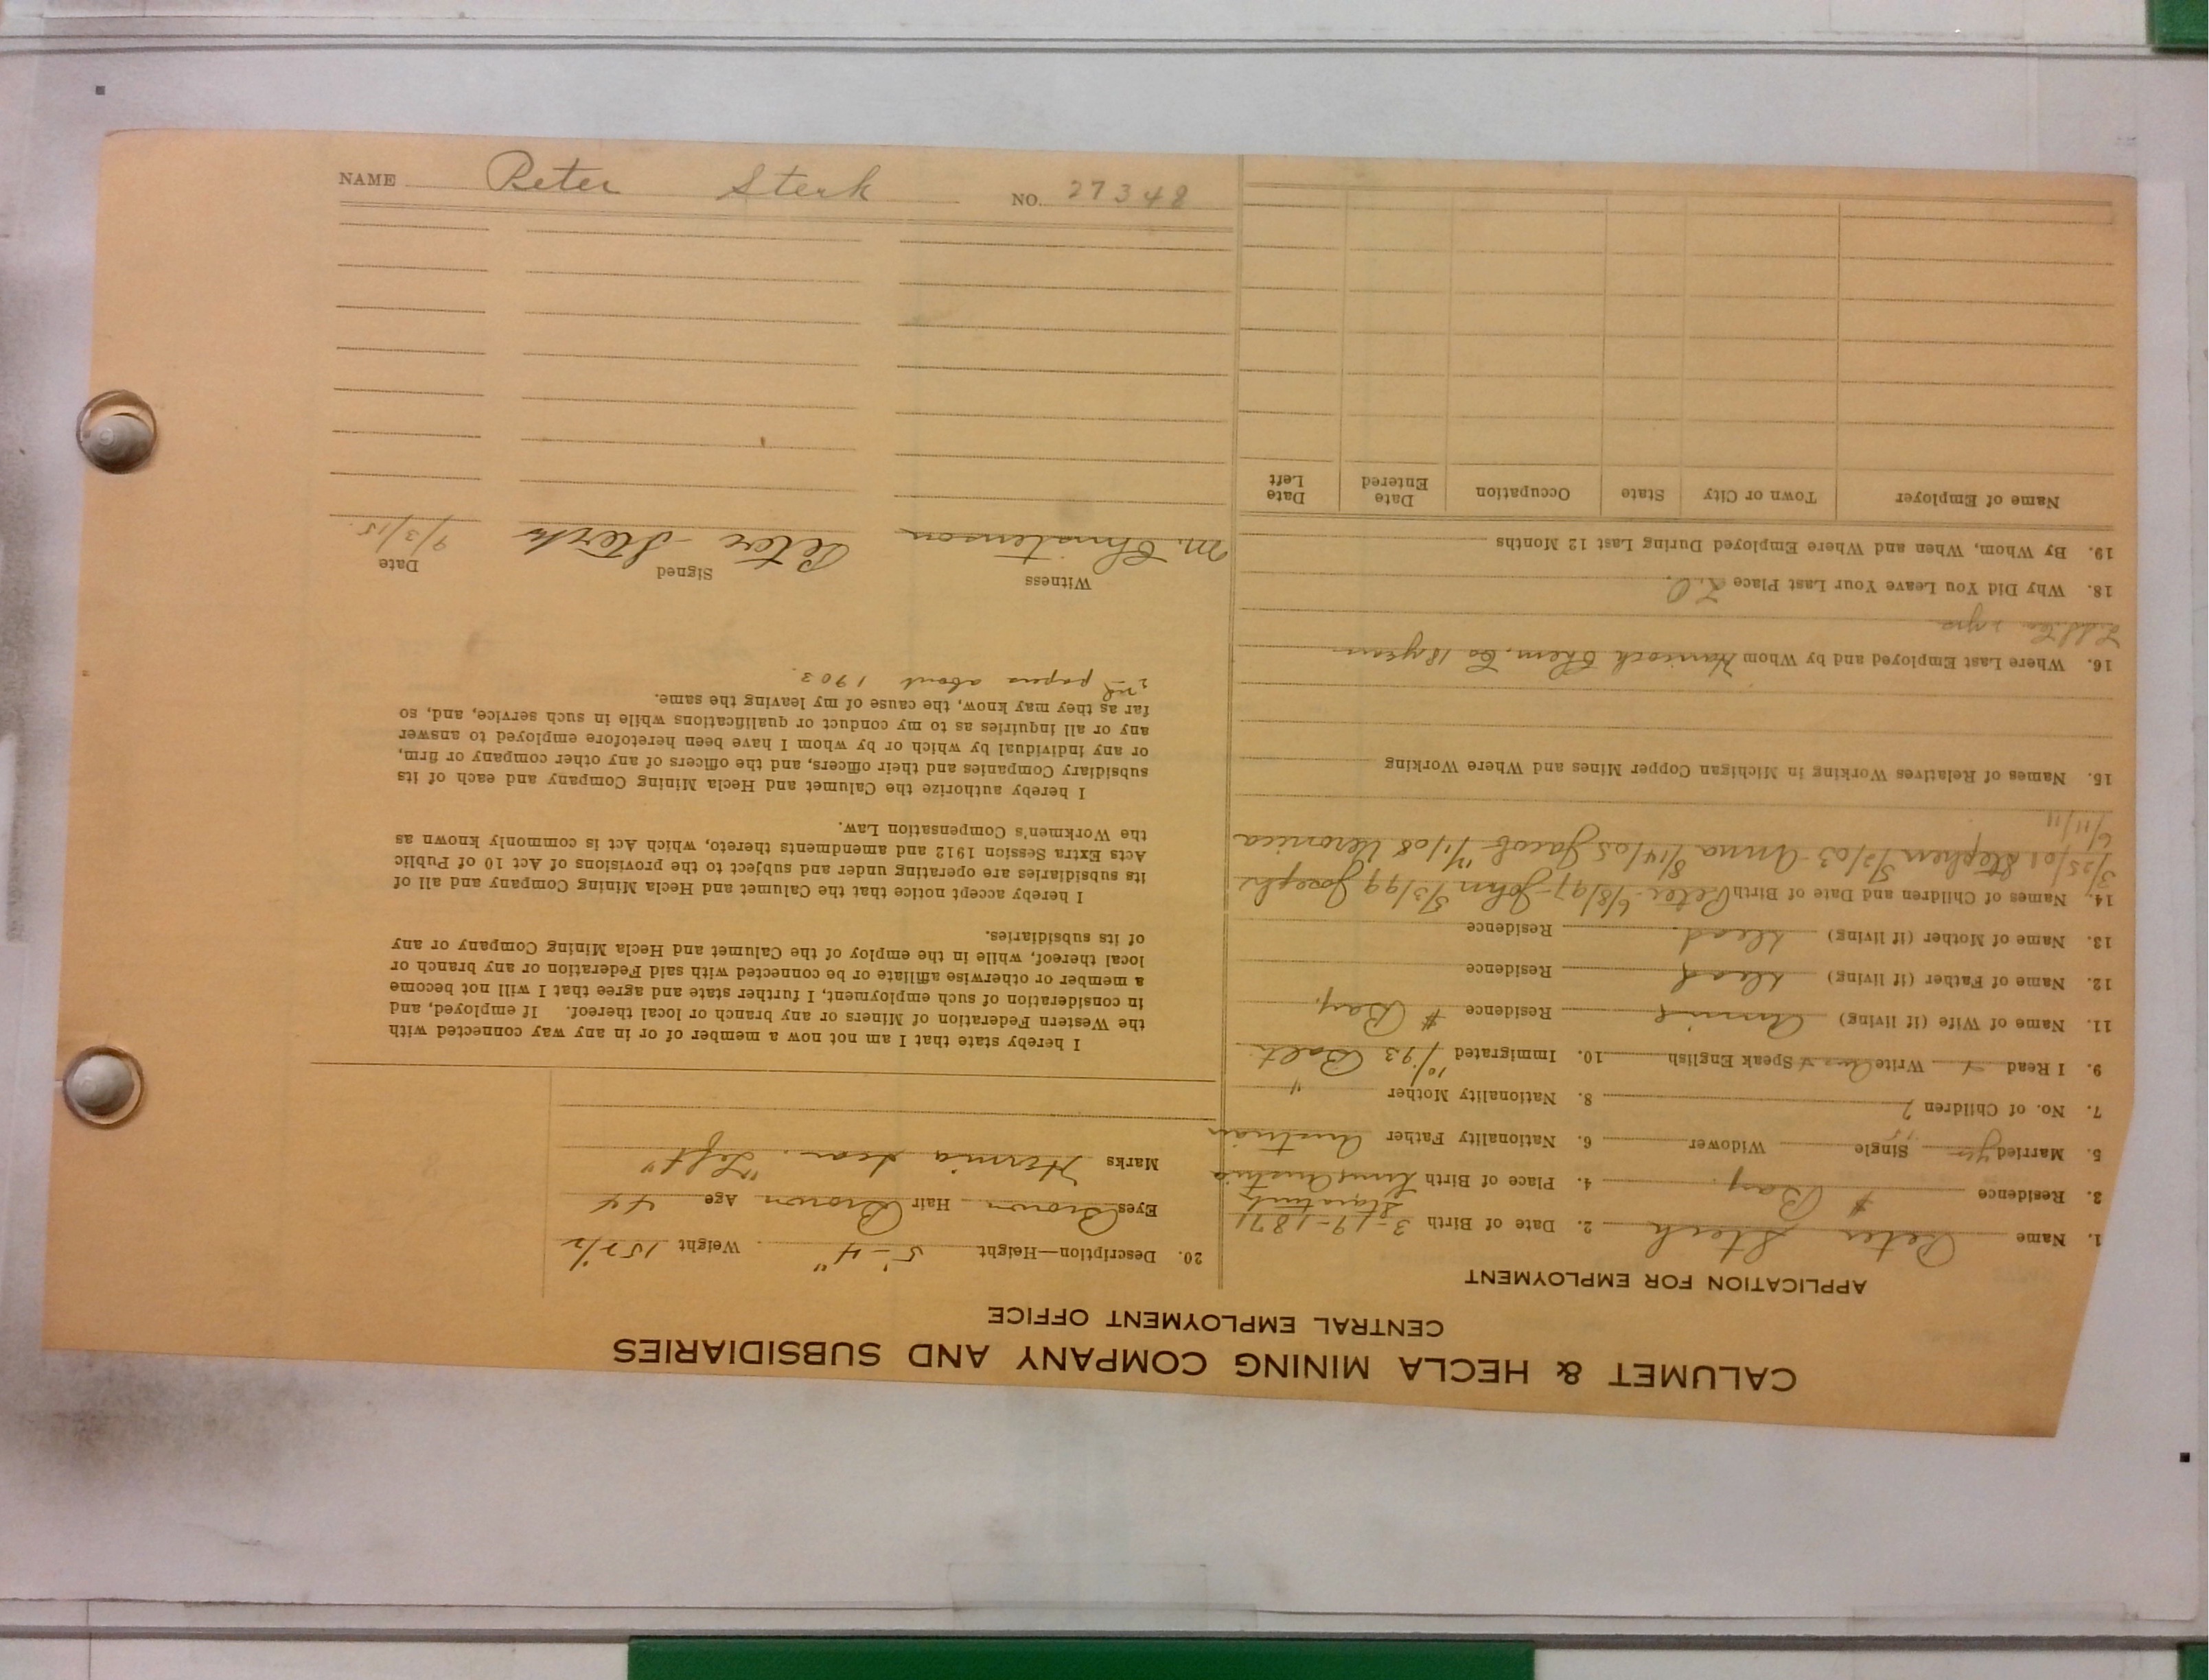 NAME Peter Sterk NO. 27348
CALUMET & HECLA MINING COMPANY AND SUBSIDIARIES
CENTRAL EMPLOYMENT OFFICE
APPLICATION FOR EMPLOYMENT
1. Name Peter Sterk 2. Date of Birth 3-19-1871
3. Residence # Bay. 4. Place of Birth Austria
5. Married yes Single Widower 6. Nationality Father Austrian
7. No. of Children 7 8. Nationality Mother "
9. I Read Write Speak English 10. Immigrated 10/1/93 Balt.
11. Name of Wife (if living) Residence # Bay.
12. Name of Father (if living) dead Residence
13. Name of Mother (if living) dead. Residence
14. Names of Children and Date of Birth Peter 6/8/97 - John 5/3/99 Joseph
3/25/01 Stephen 5/2/03 Anna 8/14/05 Jacob 1/08 Veronica
6/11/11
15. Names of Relatives Working in Michigan Copper Mines and Where Working
16. Where Last Employed and by Whom Hancock Chem. Co 18 years
18. Why Did You Leave Your Last Place L.O.
19. By Whom, When and Where Employed During Last 12 Months
Name of Employer Town or City State Occupation Date Entered Date Left
20. Description—Height 5'-4" Weight 152 1/2
Eyes Brown Hair Brown Age 44
Marks Hernia scar. "Left"
I hereby state that I am not now a member of or in any way connected with
the Western Federation of Miners or any branch or local thereof. If employed, and
in consideration of such employment, I further state and agree that I will not become
a member or otherwise affiliate or be connected with said Federation or any branch or
local thereof, while in the employ of the Calumet and Hecla Mining Company or any
of its subsidiaries.
I hereby accept notice that the Calumet and Hecla Mining Company and all of
its subsidiaries are operating under and subject to the provisions of Act 10 of Public
Acts Extra Session 1912 and amendments thereto, which Act is commonly known as
the Workmen's Compensation Law.
I hereby authorize the Calumet and Hecla Mining Company and each of its
subsidiary Companies and their officers, and the officers of any other company or firm,
or any individual by which or by whom I have been heretofore employed to answer
any or all inquiries as to my conduct or qualifications while in such service, and, so
far as they may know, the cause of my leaving the same.
2nd papers about 1903.
Witness Signed Date
M. Christenson Peter Sterk 9/3/15.